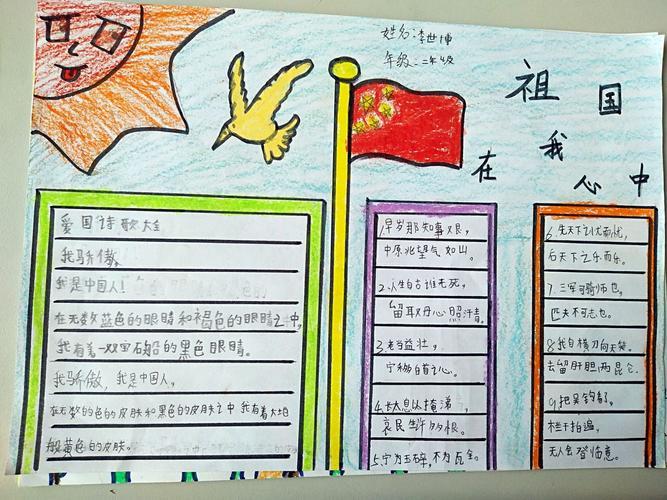 姓名:李世博
年级:二年级
祖国
在我心中
爱国诗歌大全
我骄傲。
我是中国人!
在无数蓝色的眼睛和褐色的眼睛之中,
我有着一双宝石般的黑色眼睛。
我骄傲,我是中国人。
在无数的色的皮肤和黑色的皮肤之中 我有着大地
般黄色的皮肤。
1.早岁那知事艰,
中原北望气如山。
2.人生自古谁无死,
留取丹心照汗青。
3.老当益壮,
宁移白首之心。
4.长太息以掩涕,
哀民生多艰。
5.宁为玉碎,不为瓦全。
6.先天下之忧而忧,
后天下之乐而乐。
7.三军可夺帅也,
匹夫不可志也。
8.我自横刀向天笑。
去留肝胆两昆仑。
9.把吴钩看了,
栏干拍遍,
无人会登临意。